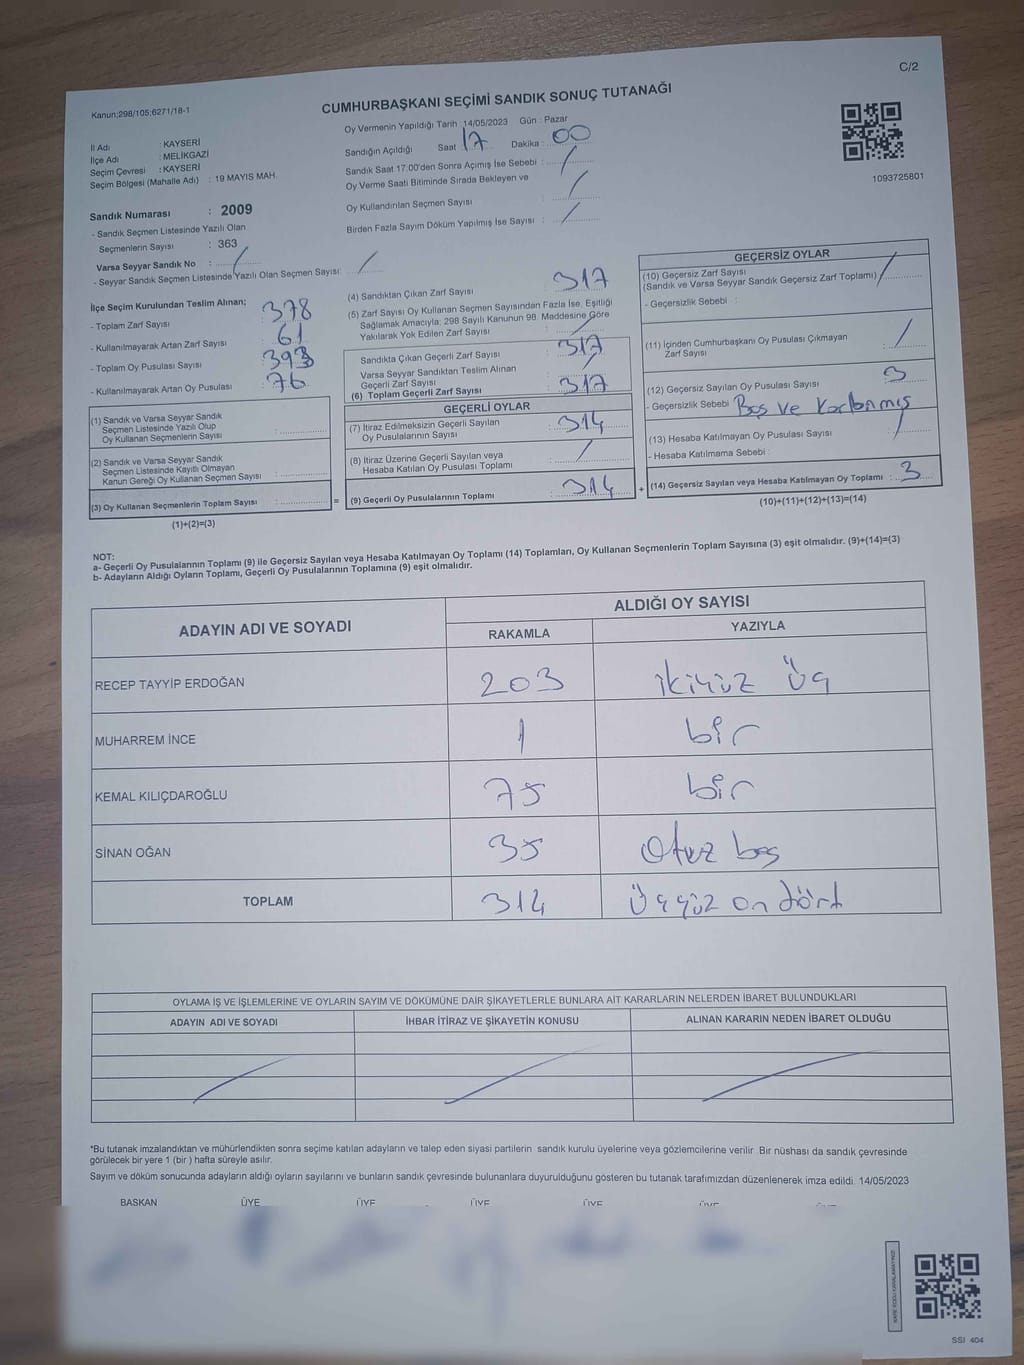 C/2
Kanun:298/105;6271/18-1
CUMHURBAŞKANI SEÇİMİ SANDIK SONUÇ TUTANAĞI
İl Adı : KAYSERİ
İlçe Adı : MELİKGAZİ
Seçim Çevresi : KAYSERİ
Seçim Bölgesi (Mahalle Adı) : 19 MAYIS MAH.
Oy Vermenin Yapıldığı Tarih : 14/05/2023 Gün : Pazar
Sandığın Açıldığı Saat : 17 Dakika : 00
Sandık Saat 17.00'den Sonra Açımış İse Sebebi : /
Oy Verme Saati Bitiminde Sırada Bekleyen ve
Oy Kullandırılan Seçmen Sayısı : /
Birden Fazla Sayım Döküm Yapılmış İse Sayısı : /
1093725801
Sandık Numarası : 2009
- Sandık Seçmen Listesinde Yazılı Olan
Seçmenlerin Sayısı : 363
Varsa Seyyar Sandık No : /
- Seyyar Sandık Seçmen Listesinde Yazılı Olan Seçmen Sayısı: /
İlçe Seçim Kurulundan Teslim Alınan;
- Toplam Zarf Sayısı : 378
- Kullanılmayarak Artan Zarf Sayısı : 61
- Toplam Oy Pusulası Sayısı : 393
- Kullanılmayarak Artan Oy Pusulası : 76
(1) Sandık ve Varsa Seyyar Sandık
Seçmen Listesinde Yazılı Olup
Oy Kullanan Seçmenlerin Sayısı :
(2) Sandık ve Varsa Seyyar Sandık
Seçmen Listesinde Kayıtlı Olmayan
Kanun Gereği Oy Kullanan Seçmen Sayısı :
(3) Oy Kullanan Seçmenlerin Toplam Sayısı : =
(1)+(2)=(3)
(4) Sandıktan Çıkan Zarf Sayısı : 317
(5) Zarf Sayısı Oy Kullanan Seçmen Sayısından Fazla İse, Eşitliği
Sağlamak Amacıyla, 298 Sayılı Kanunun 98. Maddesine Göre
Yakılarak Yok Edilen Zarf Sayısı : /
Sandıkta Çıkan Geçerli Zarf Sayısı : 317
Varsa Seyyar Sandıktan Teslim Alınan
Geçerli Zarf Sayısı : /
(6) Toplam Geçerli Zarf Sayısı : 317
GEÇERLİ OYLAR
(7) İtiraz Edilmeksizin Geçerli Sayılan
Oy Pusulalarının Sayısı : 314
(8) İtiraz Üzerine Geçerli Sayılan veya
Hesaba Katılan Oy Pusulası Toplamı : /
(9) Geçerli Oy Pusulalarının Toplamı : 314 +
GEÇERSİZ OYLAR
(10) Geçersiz Zarf Sayısı
(Sandık ve Varsa Seyyar Sandık Geçersiz Zarf Toplamı) : /
- Geçersizlik Sebebi :
(11) İçinden Cumhurbaşkanı Oy Pusulası Çıkmayan
Zarf Sayısı : /
(12) Geçersiz Sayılan Oy Pusulası Sayısı : 3
- Geçersizlik Sebebi : Boş ve Karalanmış
(13) Hesaba Katılmayan Oy Pusulası Sayısı : /
- Hesaba Katılmama Sebebi :
(14) Geçersiz Sayılan veya Hesaba Katılmayan Oy Toplamı : 3
(10)+(11)+(12)+(13)=(14)
NOT:
a- Geçerli Oy Pusulalarının Toplamı (9) ile Geçersiz Sayılan veya Hesaba Katılmayan Oy Toplamı (14) Toplamları, Oy Kullanan Seçmenlerin Toplam Sayısına (3) eşit olmalıdır. (9)+(14)=(3)
b- Adayların Aldığı Oyların Toplamı, Geçerli Oy Pusulalarının Toplamına (9) eşit olmalıdır.
ADAYIN ADI VE SOYADI
ALDIĞI OY SAYISI
RAKAMLA YAZIYLA
RECEP TAYYİP ERDOĞAN 203 ikiyüz üç
MUHARREM İNCE 1 bir
KEMAL KILIÇDAROĞLU 75 bir
SİNAN OĞAN 35 Otuz beş
TOPLAM 314 Üçyüz on dört
OYLAMA İŞ VE İŞLEMLERİNE VE OYLARIN SAYIM VE DÖKÜMÜNE DAİR ŞİKAYETLERLE BUNLARA AİT KARARLARIN NELERDEN İBARET BULUNDUKLARI
ADAYIN ADI VE SOYADI İHBAR İTİRAZ VE ŞİKAYETİN KONUSU ALINAN KARARIN NEDEN İBARET OLDUĞU
*Bu tutanak imzalandıktan ve mühürlendikten sonra seçime katılan adayların ve talep eden siyasi partilerin sandık kurulu üyelerine veya gözlemcilerine verilir. Bir nüshası da sandık çevresinde
görülecek bir yere 1 (bir ) hafta süreyle asılır.
Sayım ve döküm sonucunda adayların aldığı oyların sayılarını ve bunların sandık çevresinde bulunanlara duyurulduğunu gösteren bu tutanak tarafımızdan düzenlenerek imza edildi. 14/05/2023
BAŞKAN ÜYE ÜYE ÜYE ÜYE ÜYE ÜYE
KARE KODU KARALAMAYINIZ!
SSI 404